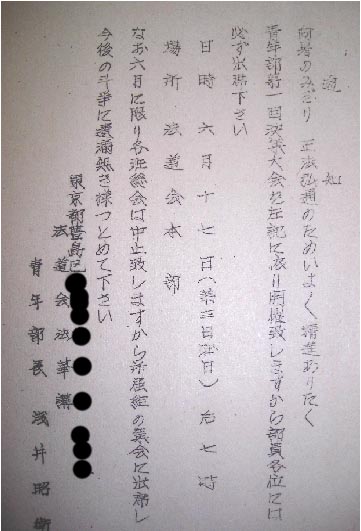 通知
阿房のみぎり 正法弘通のためいよ〱精進ありたく
青年部第一回決議大会を左記に依り開催致しますから部員各位には
必ず出席下さい
日時 六月十七日(第三日曜日)后七時
場所 法道会本部
なお六月に限り各班総会は中止致しますから 組の集会に出席し
今後の斗争に遺漏無き様つとめて下さい
東京都豊島区
法道会法華講
青年部長 浅井昭衛